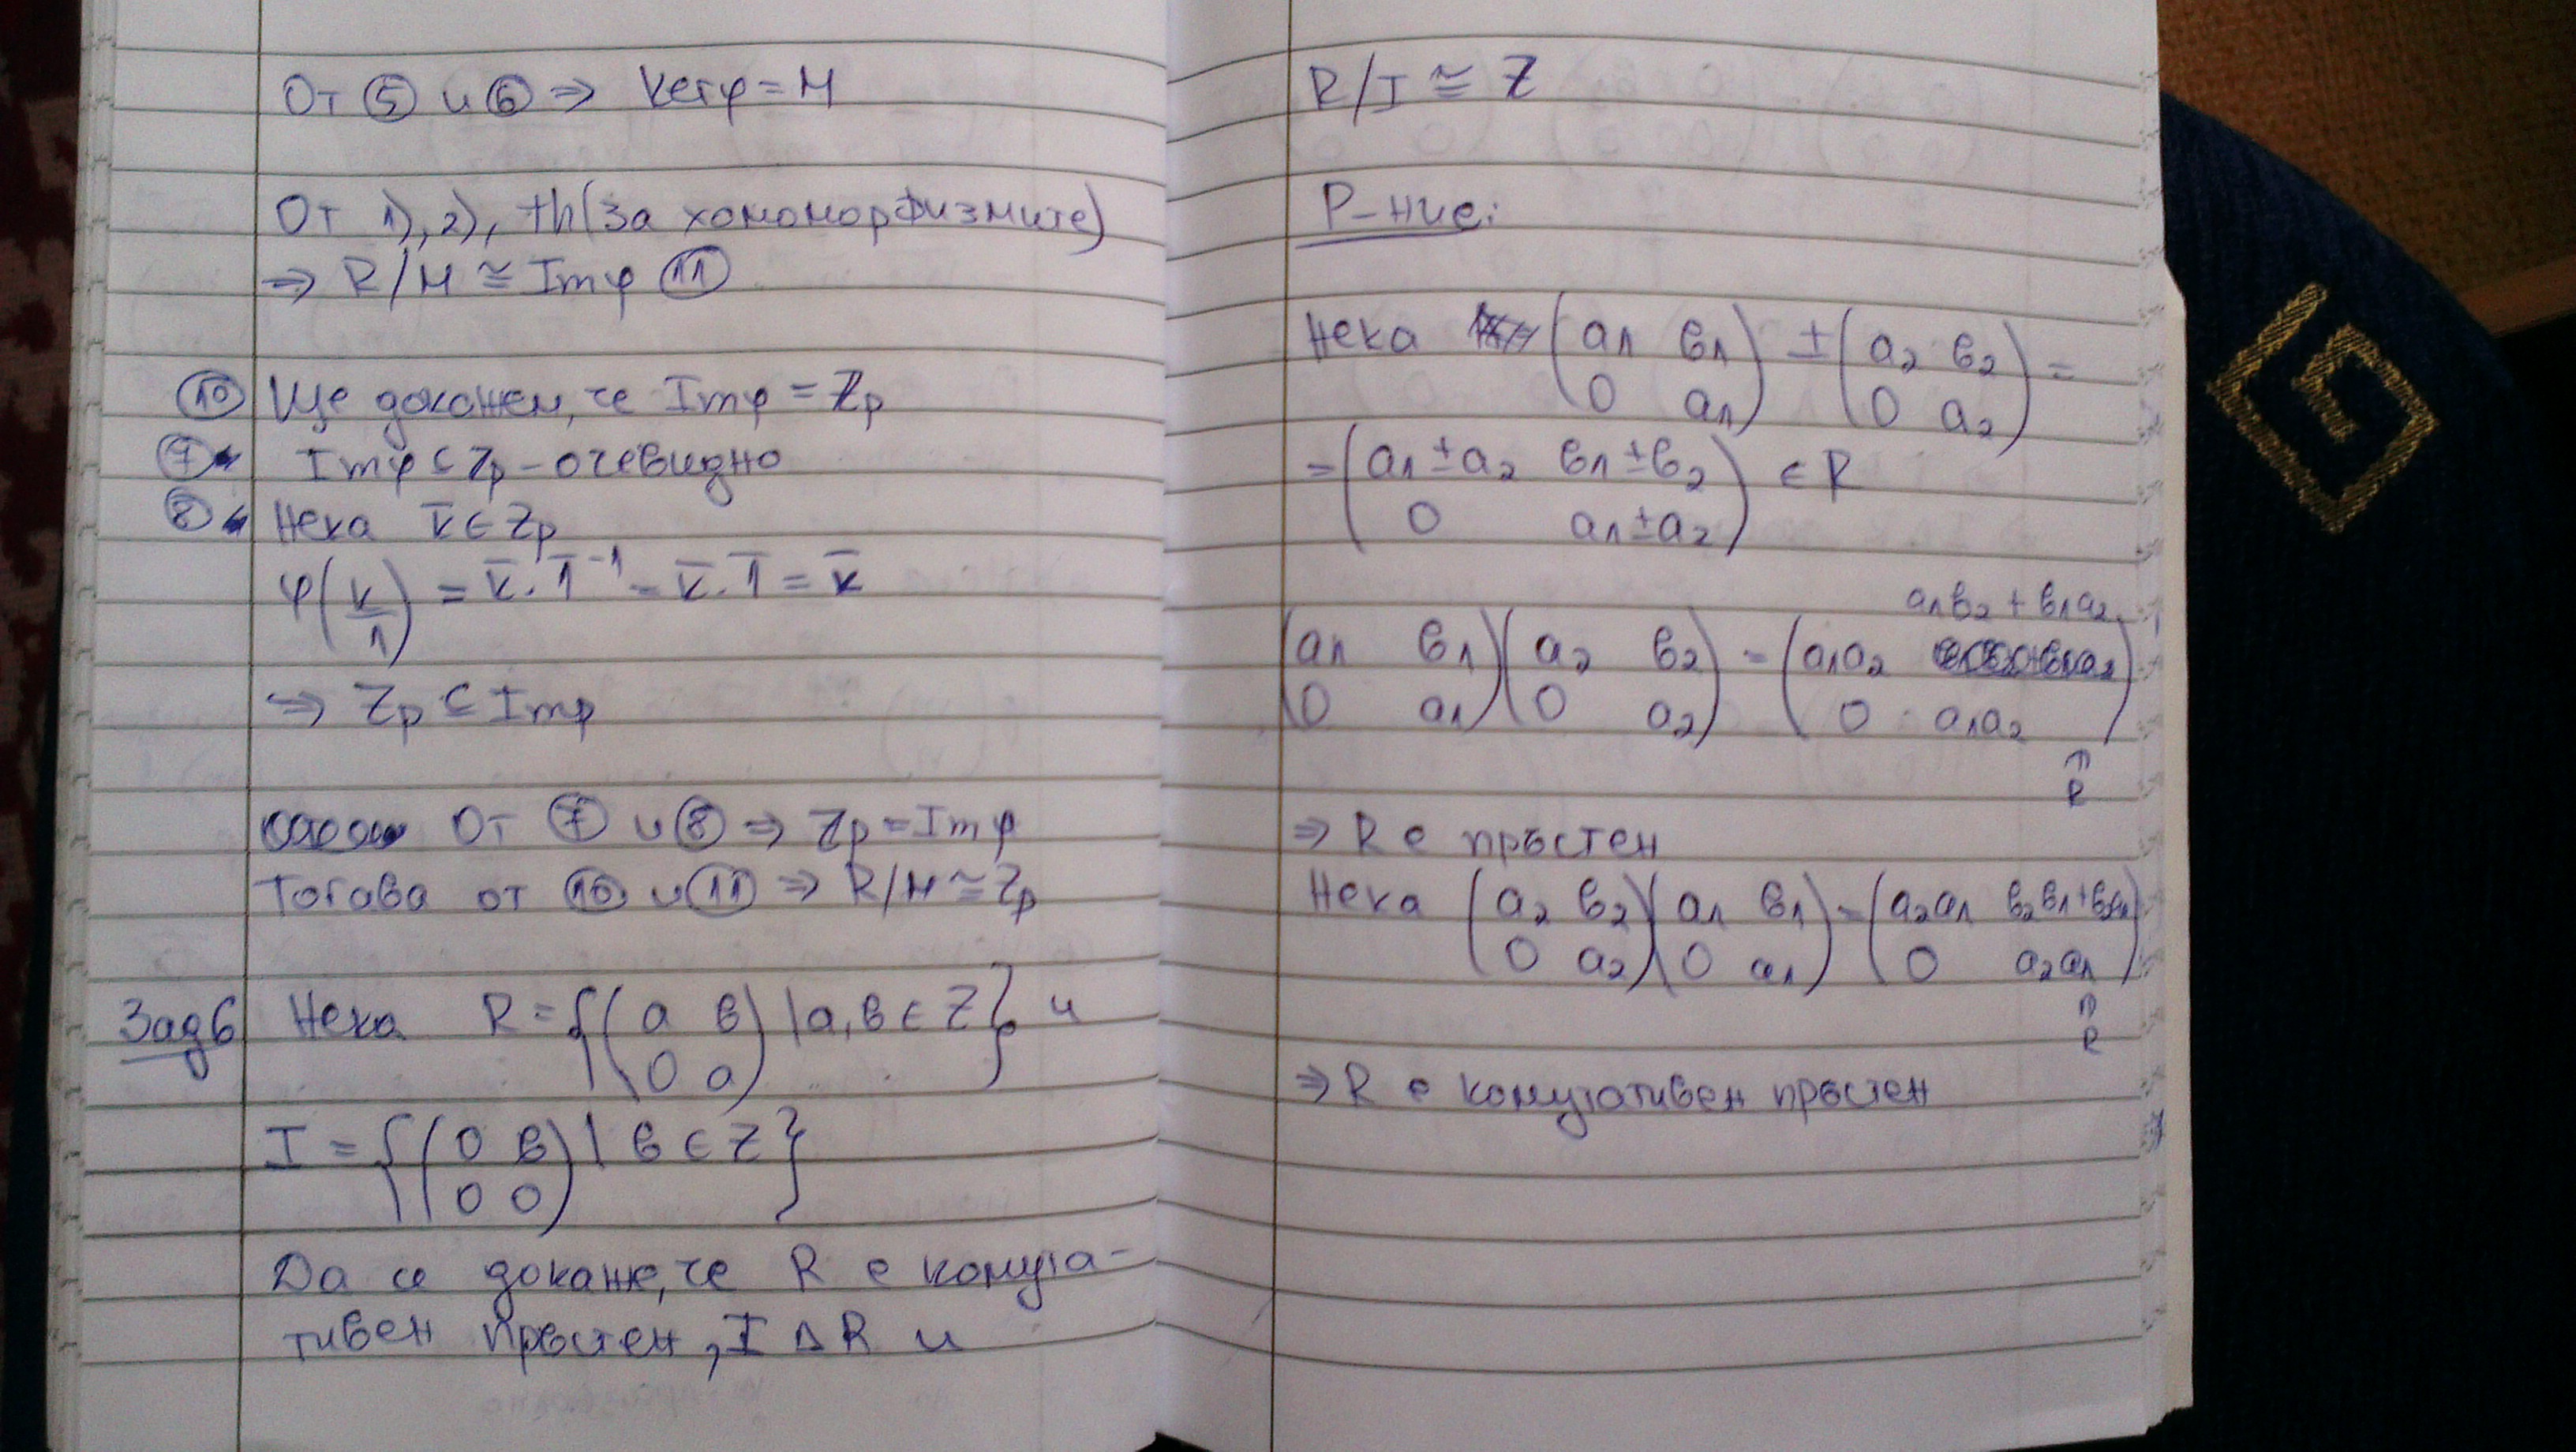 От ⑤ и ⑥ ⇒ Kerφ = M
От 1), 2), th(за хомоморфизмите)
⇒ R/M ≅ Imφ ⑪
⑩ Ще докажем, че Imφ = Zp
⑦ Imφ ⊂ Zp - очевидно
⑧ Нека k̅ ∈ Zp
φ(k/1) = k̅.1̅⁻¹ = k̅.1̅ = k̅
⇒ Zp ⊆ Imφ
От ⑦ и ⑧ ⇒ Zp = Imφ
Тогава от ⑩ и ⑪ ⇒ R/M ≅ Zp
Зад 6 Нека R = {(a в) | a, в ∈ Z} и
(0 a)
I = {(0 в) | в ∈ Z}
(0 0)
Да се докаже, че R е комута-
тивен пръстен, I Δ R и
R/I ≅ Z
Р-ние:
Нека (a1 в1) ± (a2 в2) =
(0 a1) (0 a2)
= (a1±a2 в1±в2) ∈ R
(0 a1±a2)
a1в2 + в1a2
(a1 в1)(a2 в2) = (a1a2
(0 a1)(0 a2) (0 a1a2)
∩
R
⇒ R е пръстен
Нека (a2 в2)(a1 в1) = (a2a1
(0 a2)(0 a1) (0 a2a1)
∩
R
⇒ R е комутативен пръстен